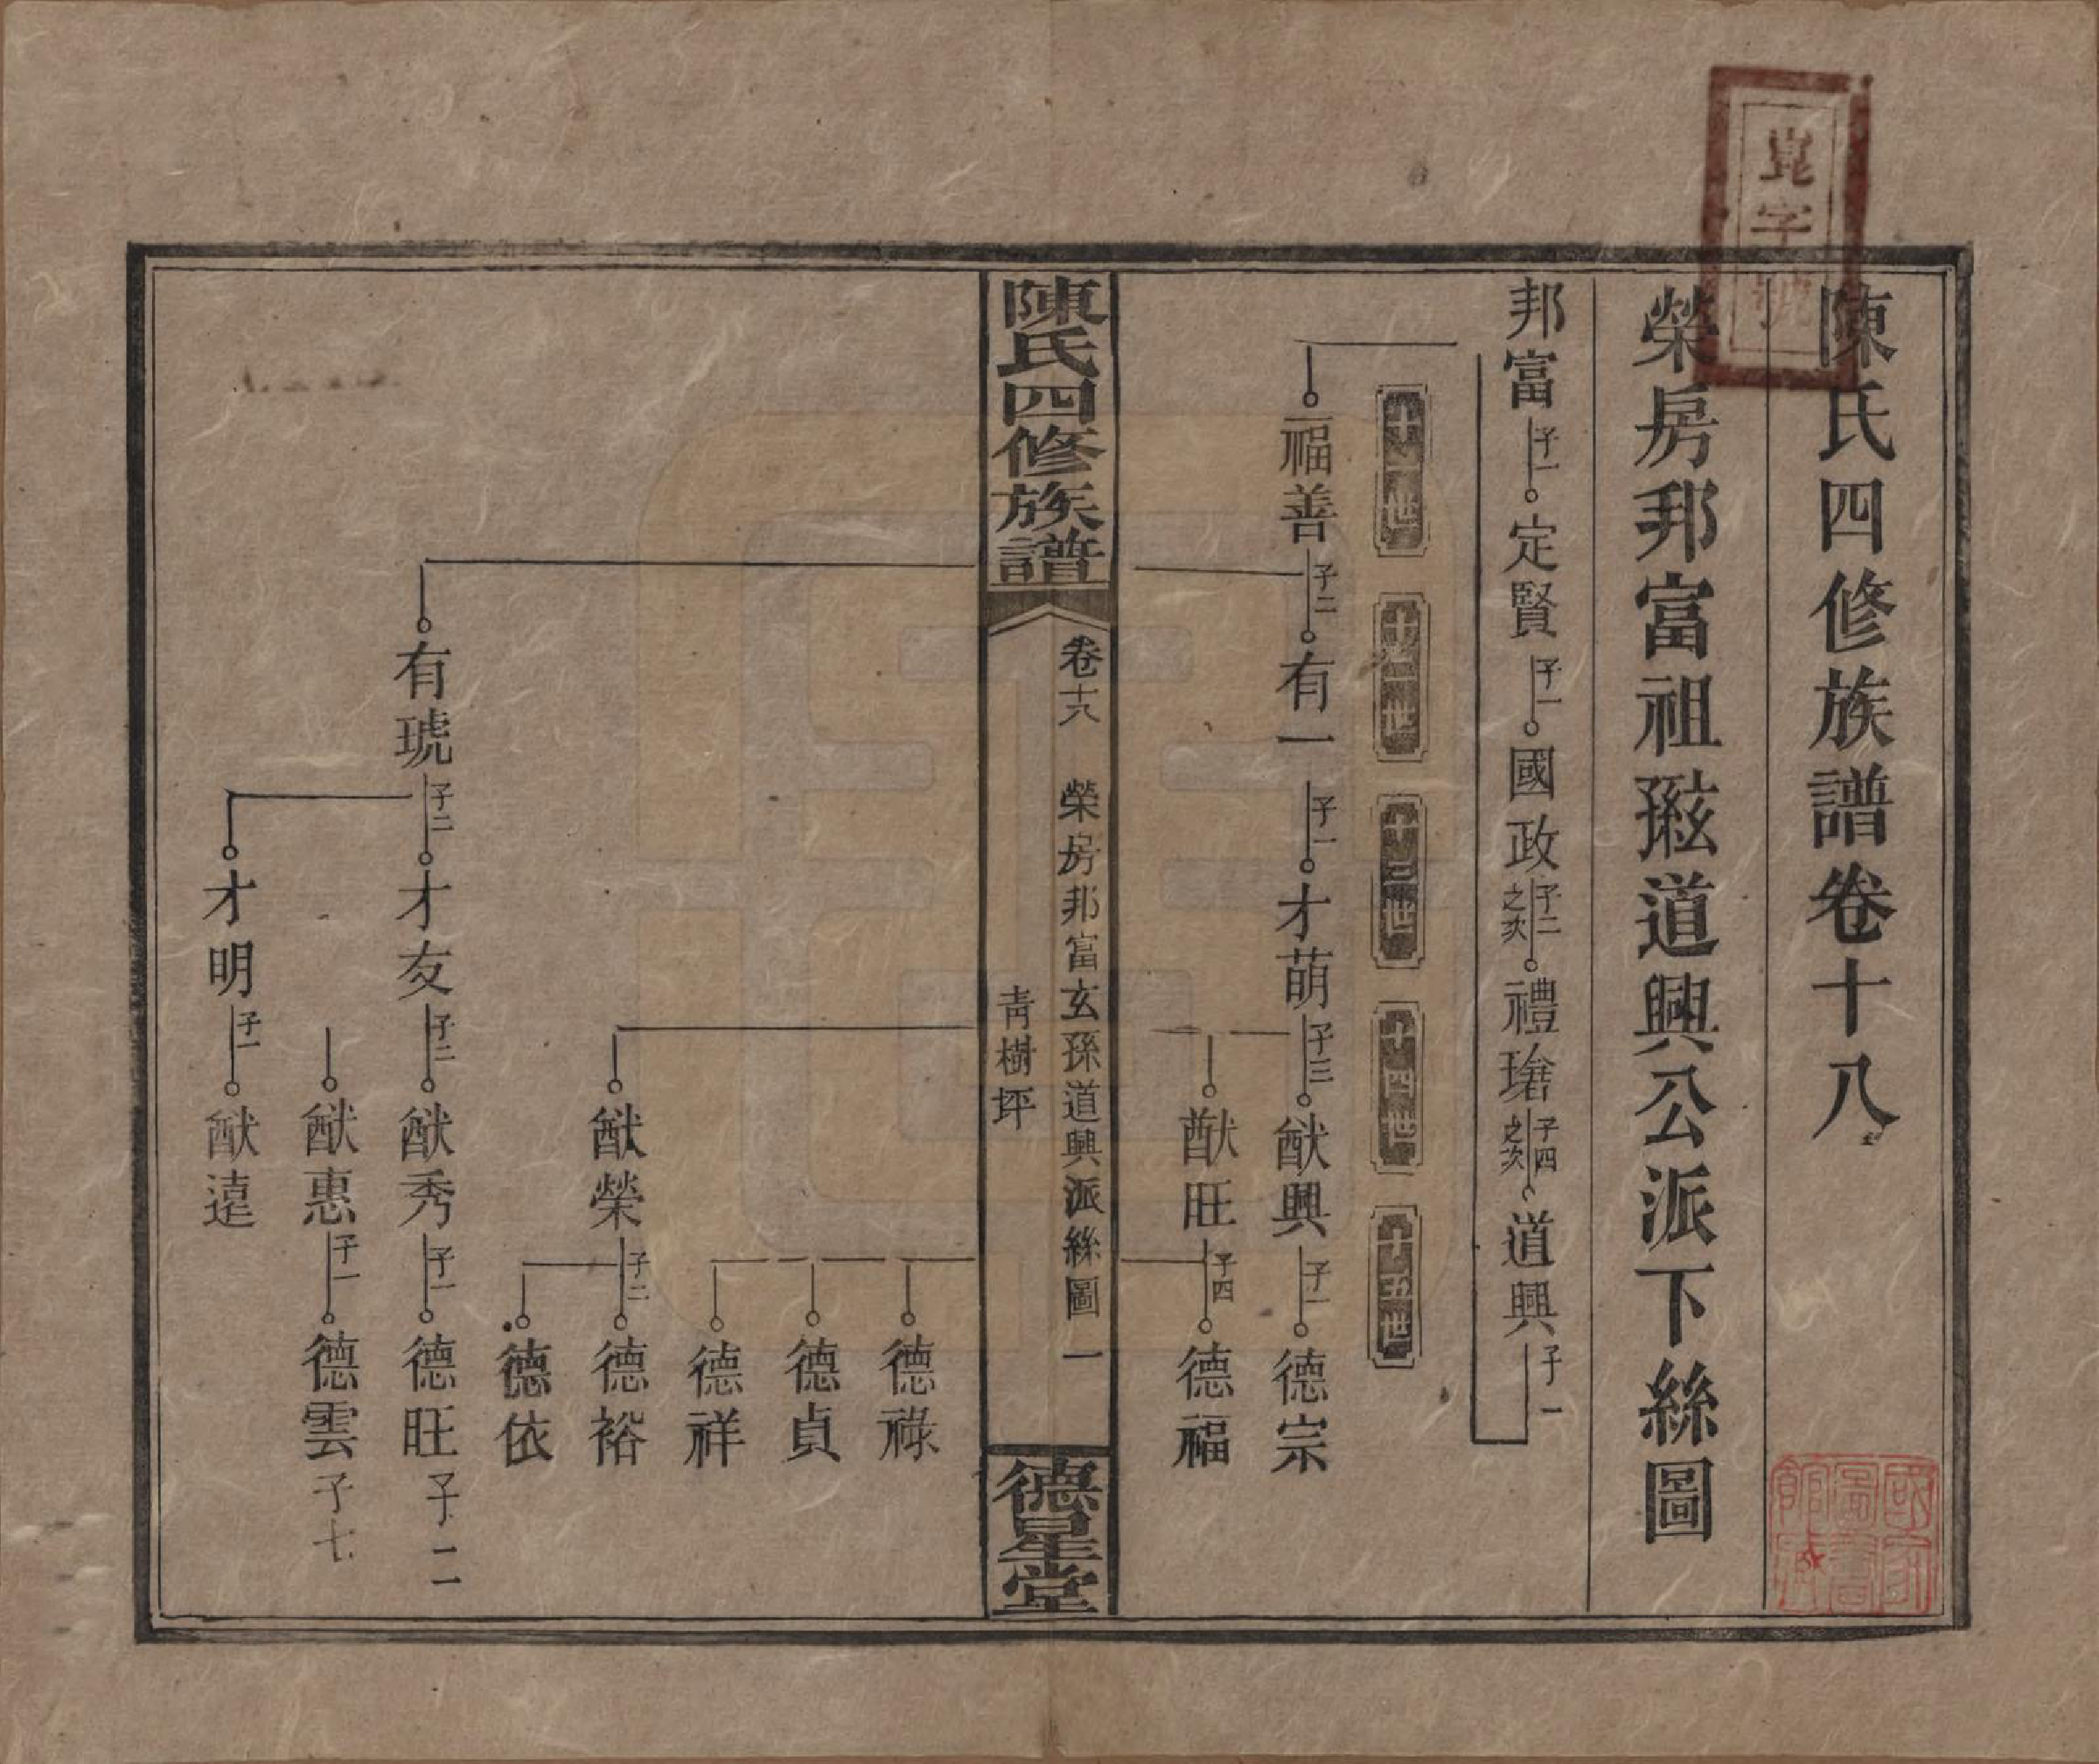 崑字號
陳氏四修族譜卷十八
榮房邦富祖𤣥孫道興公派下絲圖
邦富 子一 定賢 子一 國政 子二之次 禮瑃 子四之次 道興 子一
十一世 十二世 十三世 十四世 十五世
福善 子二 有一 子一 才萌 子三 猷興 子一 德宗
猷旺 子四 德福
陳氏四修族譜 卷十八 榮房邦富玄孫道興派絲圖 一
青樹坪
德星堂
德祿
德貞
德祥
猷榮 子二 德裕
德依
有琥 子二 才友 子二 猷秀 子一 德旺 子二
猷惠 子一 德雲 子七
才明 子一 猷遠